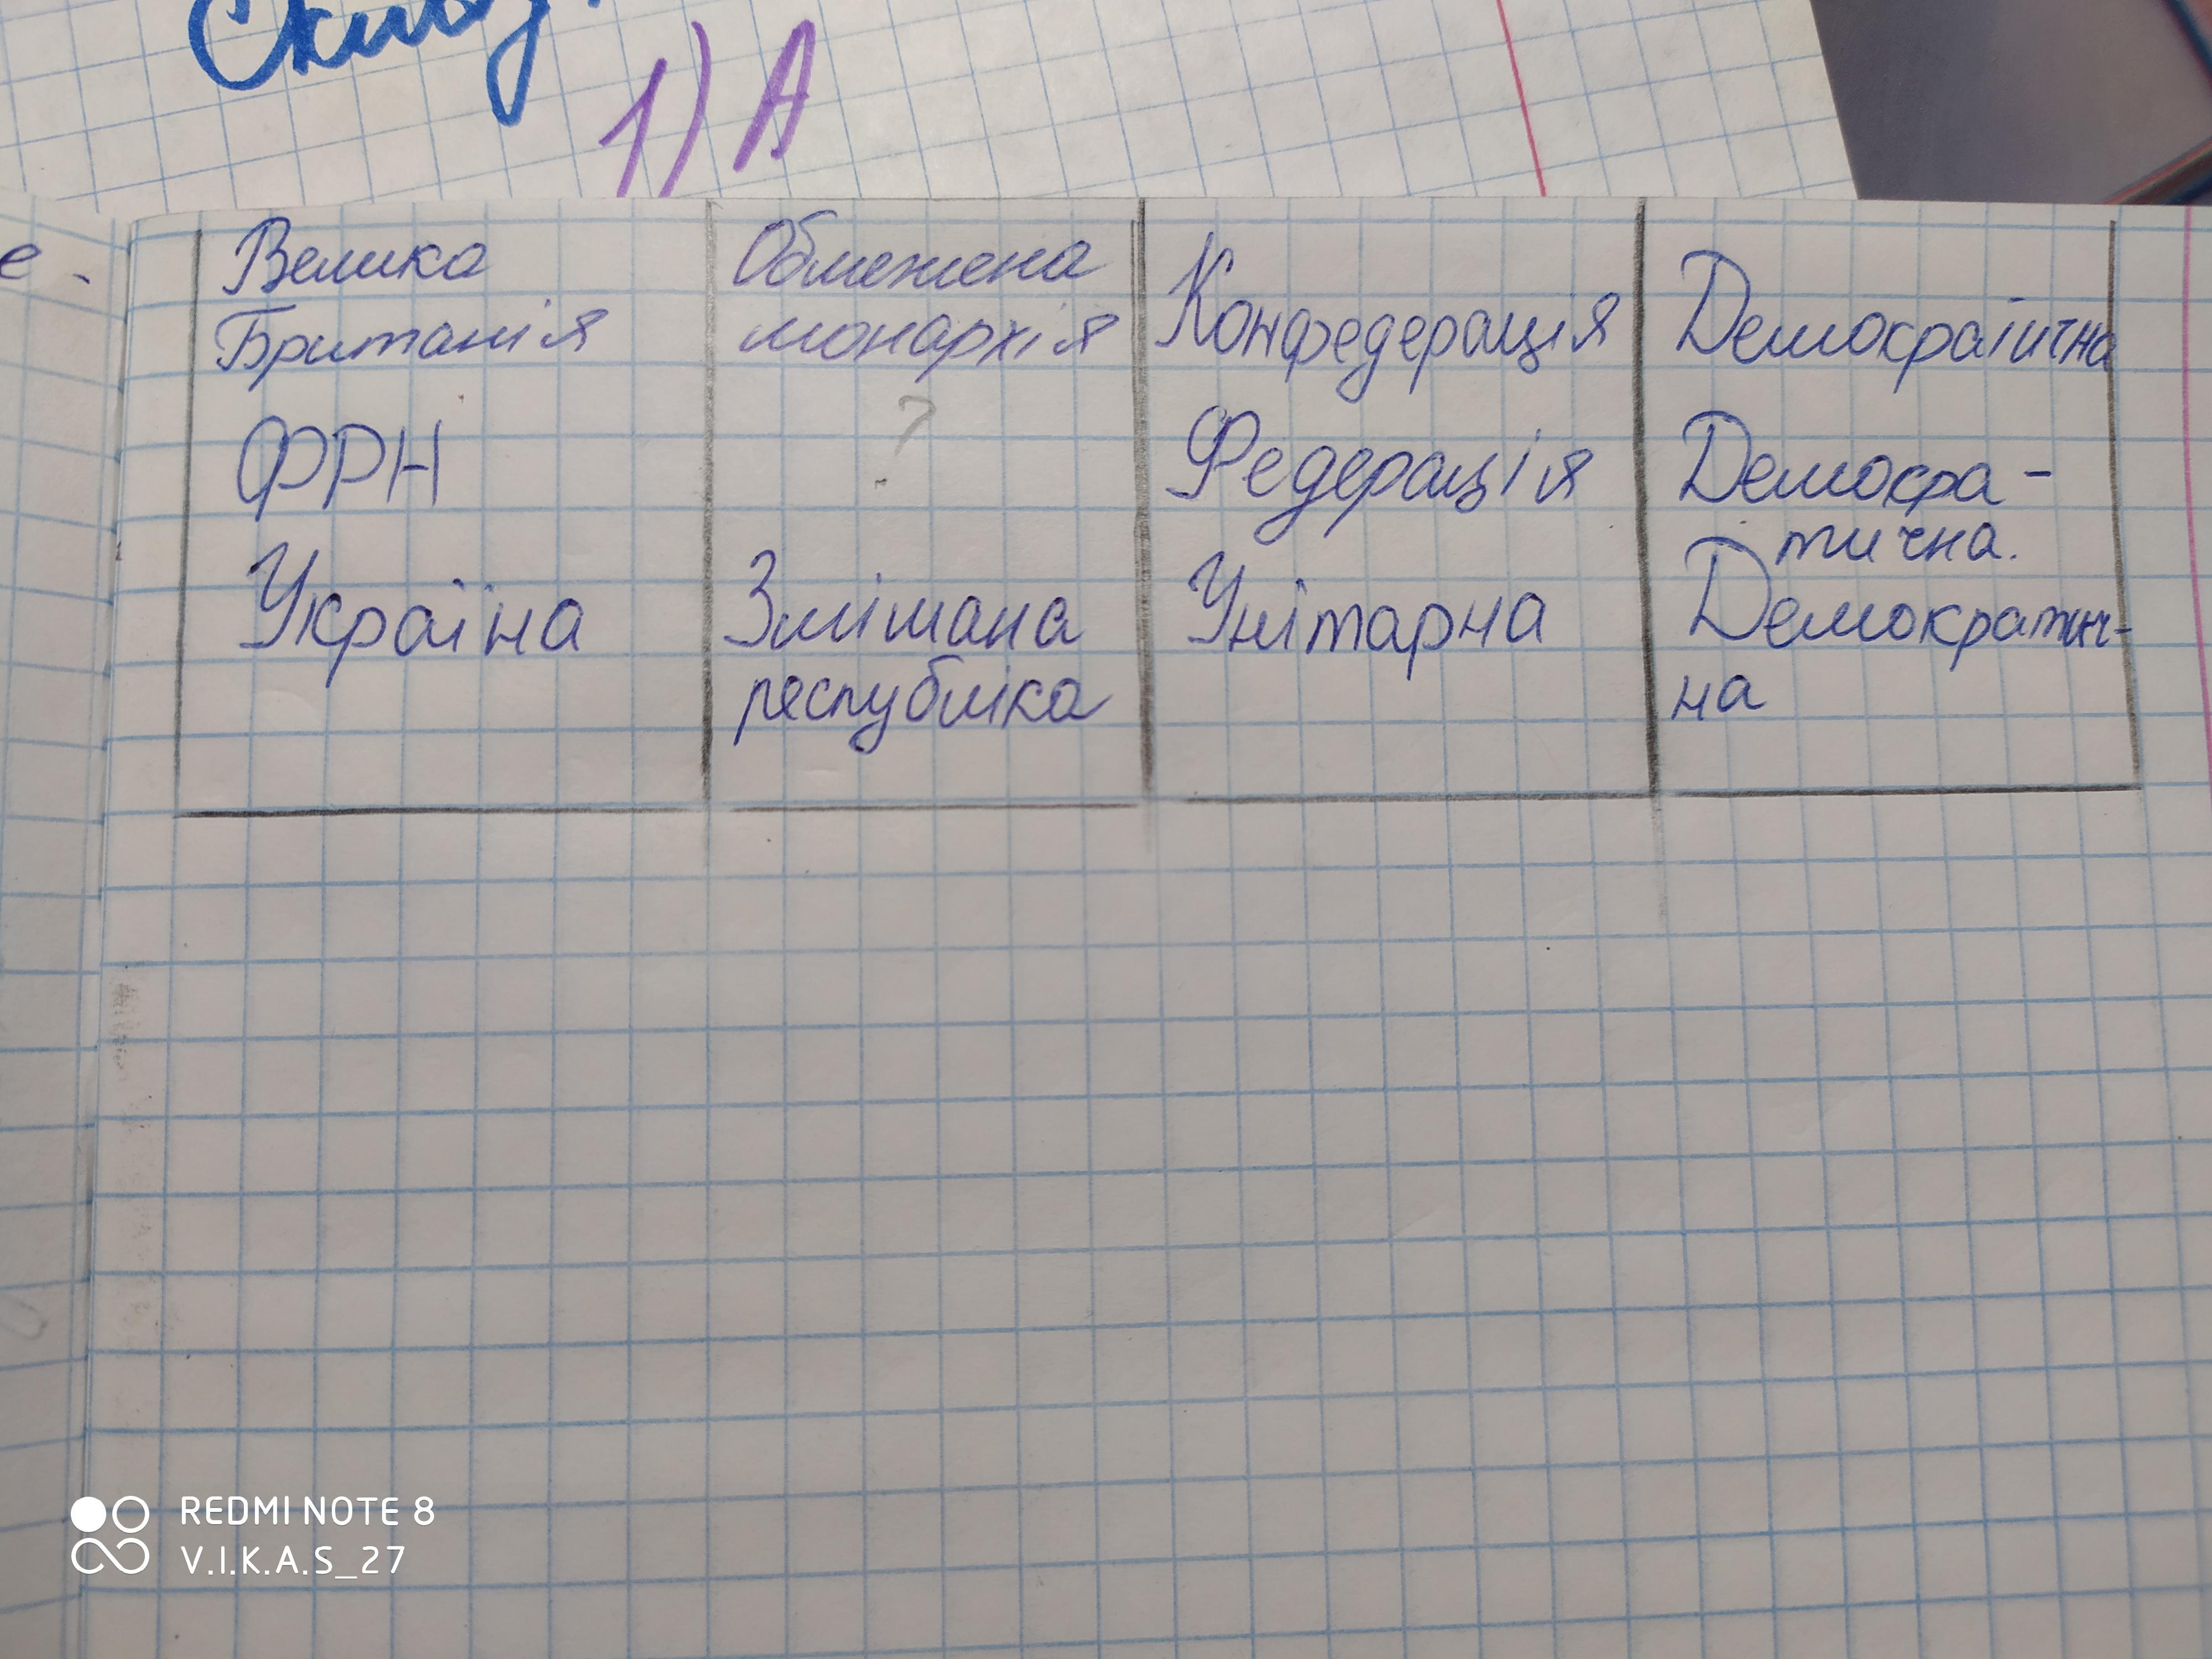 1) А
Велика
Британія
Обмежена
монархія
Конфедерація
Демократична
ФРН
?
Федерація
Демокра-
тична.
Україна
Змішана
республіка
Унітарна
Демократич-
на
REDMI NOTE 8
V.I.K.A.S_27